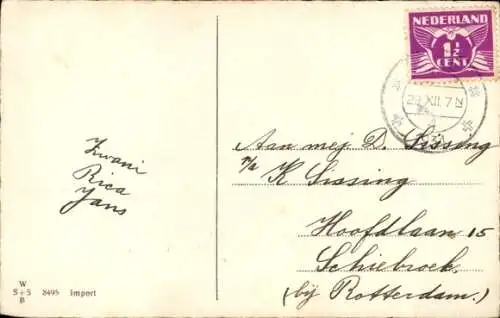 NEDERLAND
1½
CENT
29 XII. 7 N
Aan mej D. Sissing
p/a K Sissing
Hoofdlaan 15
Schiebroek.
(bij Rotterdam.)
Zwani
Rica
Jans
W
S+S 8495 Import
B